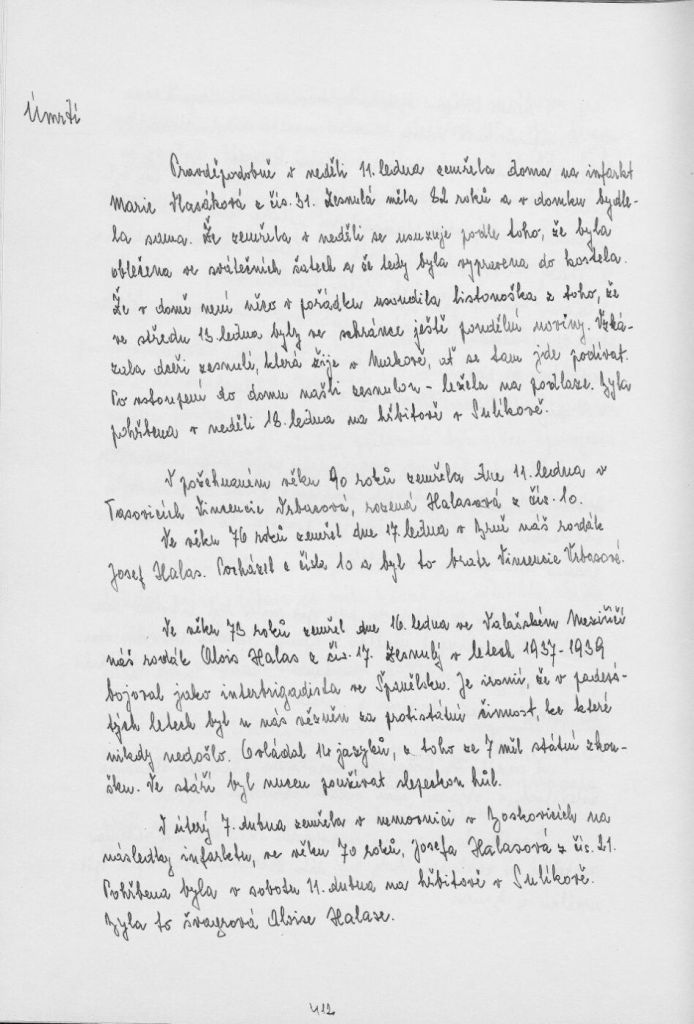 Úmrtí
Pravděpodobně v neděli 11. ledna zemřela doma na infarkt
Marie Vlasáková z čís. 31. Zesnulá měla 82 roků a v domku bydle-
la sama. Že zemřela v neděli se usuzuje podle toho, že byla
oblečena ve svátečních šatech a že tedy byla vypravena do kostela.
Že v domě není něco v pořádku usoudila listonoška z toho, že
ve středu 13. ledna byly ve schránce ještě pondělní noviny. Vzká-
zala dceři zesnulé, která žije v , ať se tam jde podívat.
Po vstoupení do domu našli zesnulou - ležela na podlaze. Byla
pohřbena v neděli 18. ledna na hřbitově v Sulíkově.
V požehnaném věku 90 roků zemřela dne 11. ledna v
Tasovicích Vincencie Vrbasová, rozená Halasová z čís. 10.
Ve věku 76 roků zemřel dne 17. ledna v Brně náš rodák
Josef Halas. Pocházel z čísla 10 a byl to bratr Vincencie Vrbasové.
Ve věku 73 roků zemřel dne 16. ledna ve Valašském Meziříčí
náš rodák Alois Halas z čís. 17. Zesnulý v letech 1937-1939
bojoval jako interbrigadista ve Španělsku. Je ironií, že v padesá-
tých letech byl u nás vězněn za protistátní činnost, ke které
nikdy nedošlo. Ovládal 14 jazyků, z toho ze 7 měl státní zkou-
šku. Ve stáří byl nucen používat slepeckou hůl.
V úterý 7. dubna zemřela v nemocnici v Boskovicích na
následky infarktu, ve věku 70 roků, Josefa Halasová z čís. 21.
Pohřbena byla v sobotu 11. dubna na hřbitově v Sulíkově.
Byla to švagrová Aloise Halase.
412